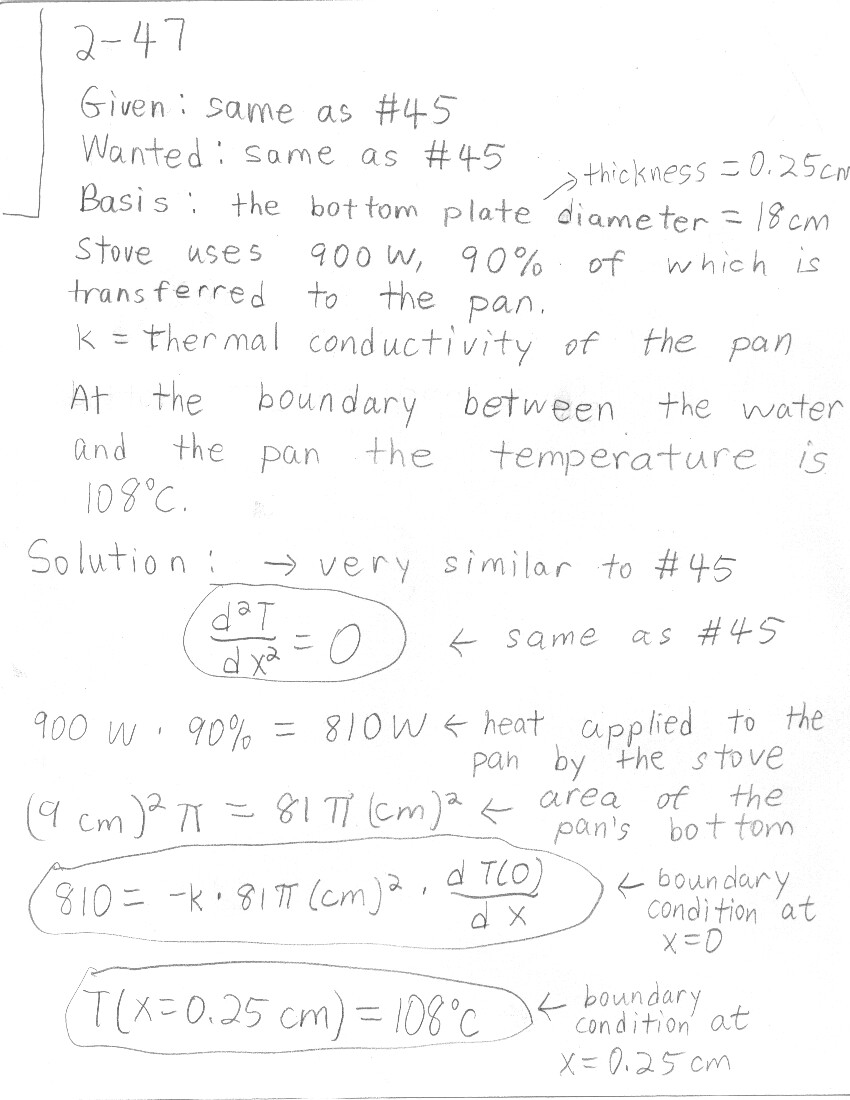 2-47
Given: same as #45
Wanted: same as #45
→ thickness = 0.25cm
Basis: the bottom plate diameter = 18cm
Stove uses 900 W, 90% of which is
transferred to the pan.
k = thermal conductivity of the pan
At the boundary between the water
and the pan the temperature is
108°C.
Solution: → very similar to #45
d²T/dx² = 0 ← same as #45
900 W · 90% = 810W ← heat applied to the
pan by the stove
(9 cm)² π = 81 π (cm)² ← area of the
pan's bottom
810 = -k · 81π (cm)² · d T(0)/d x ← boundary
condition at
x=0
T(x=0.25 cm) = 108°C ← boundary
condition at
x = 0.25 cm